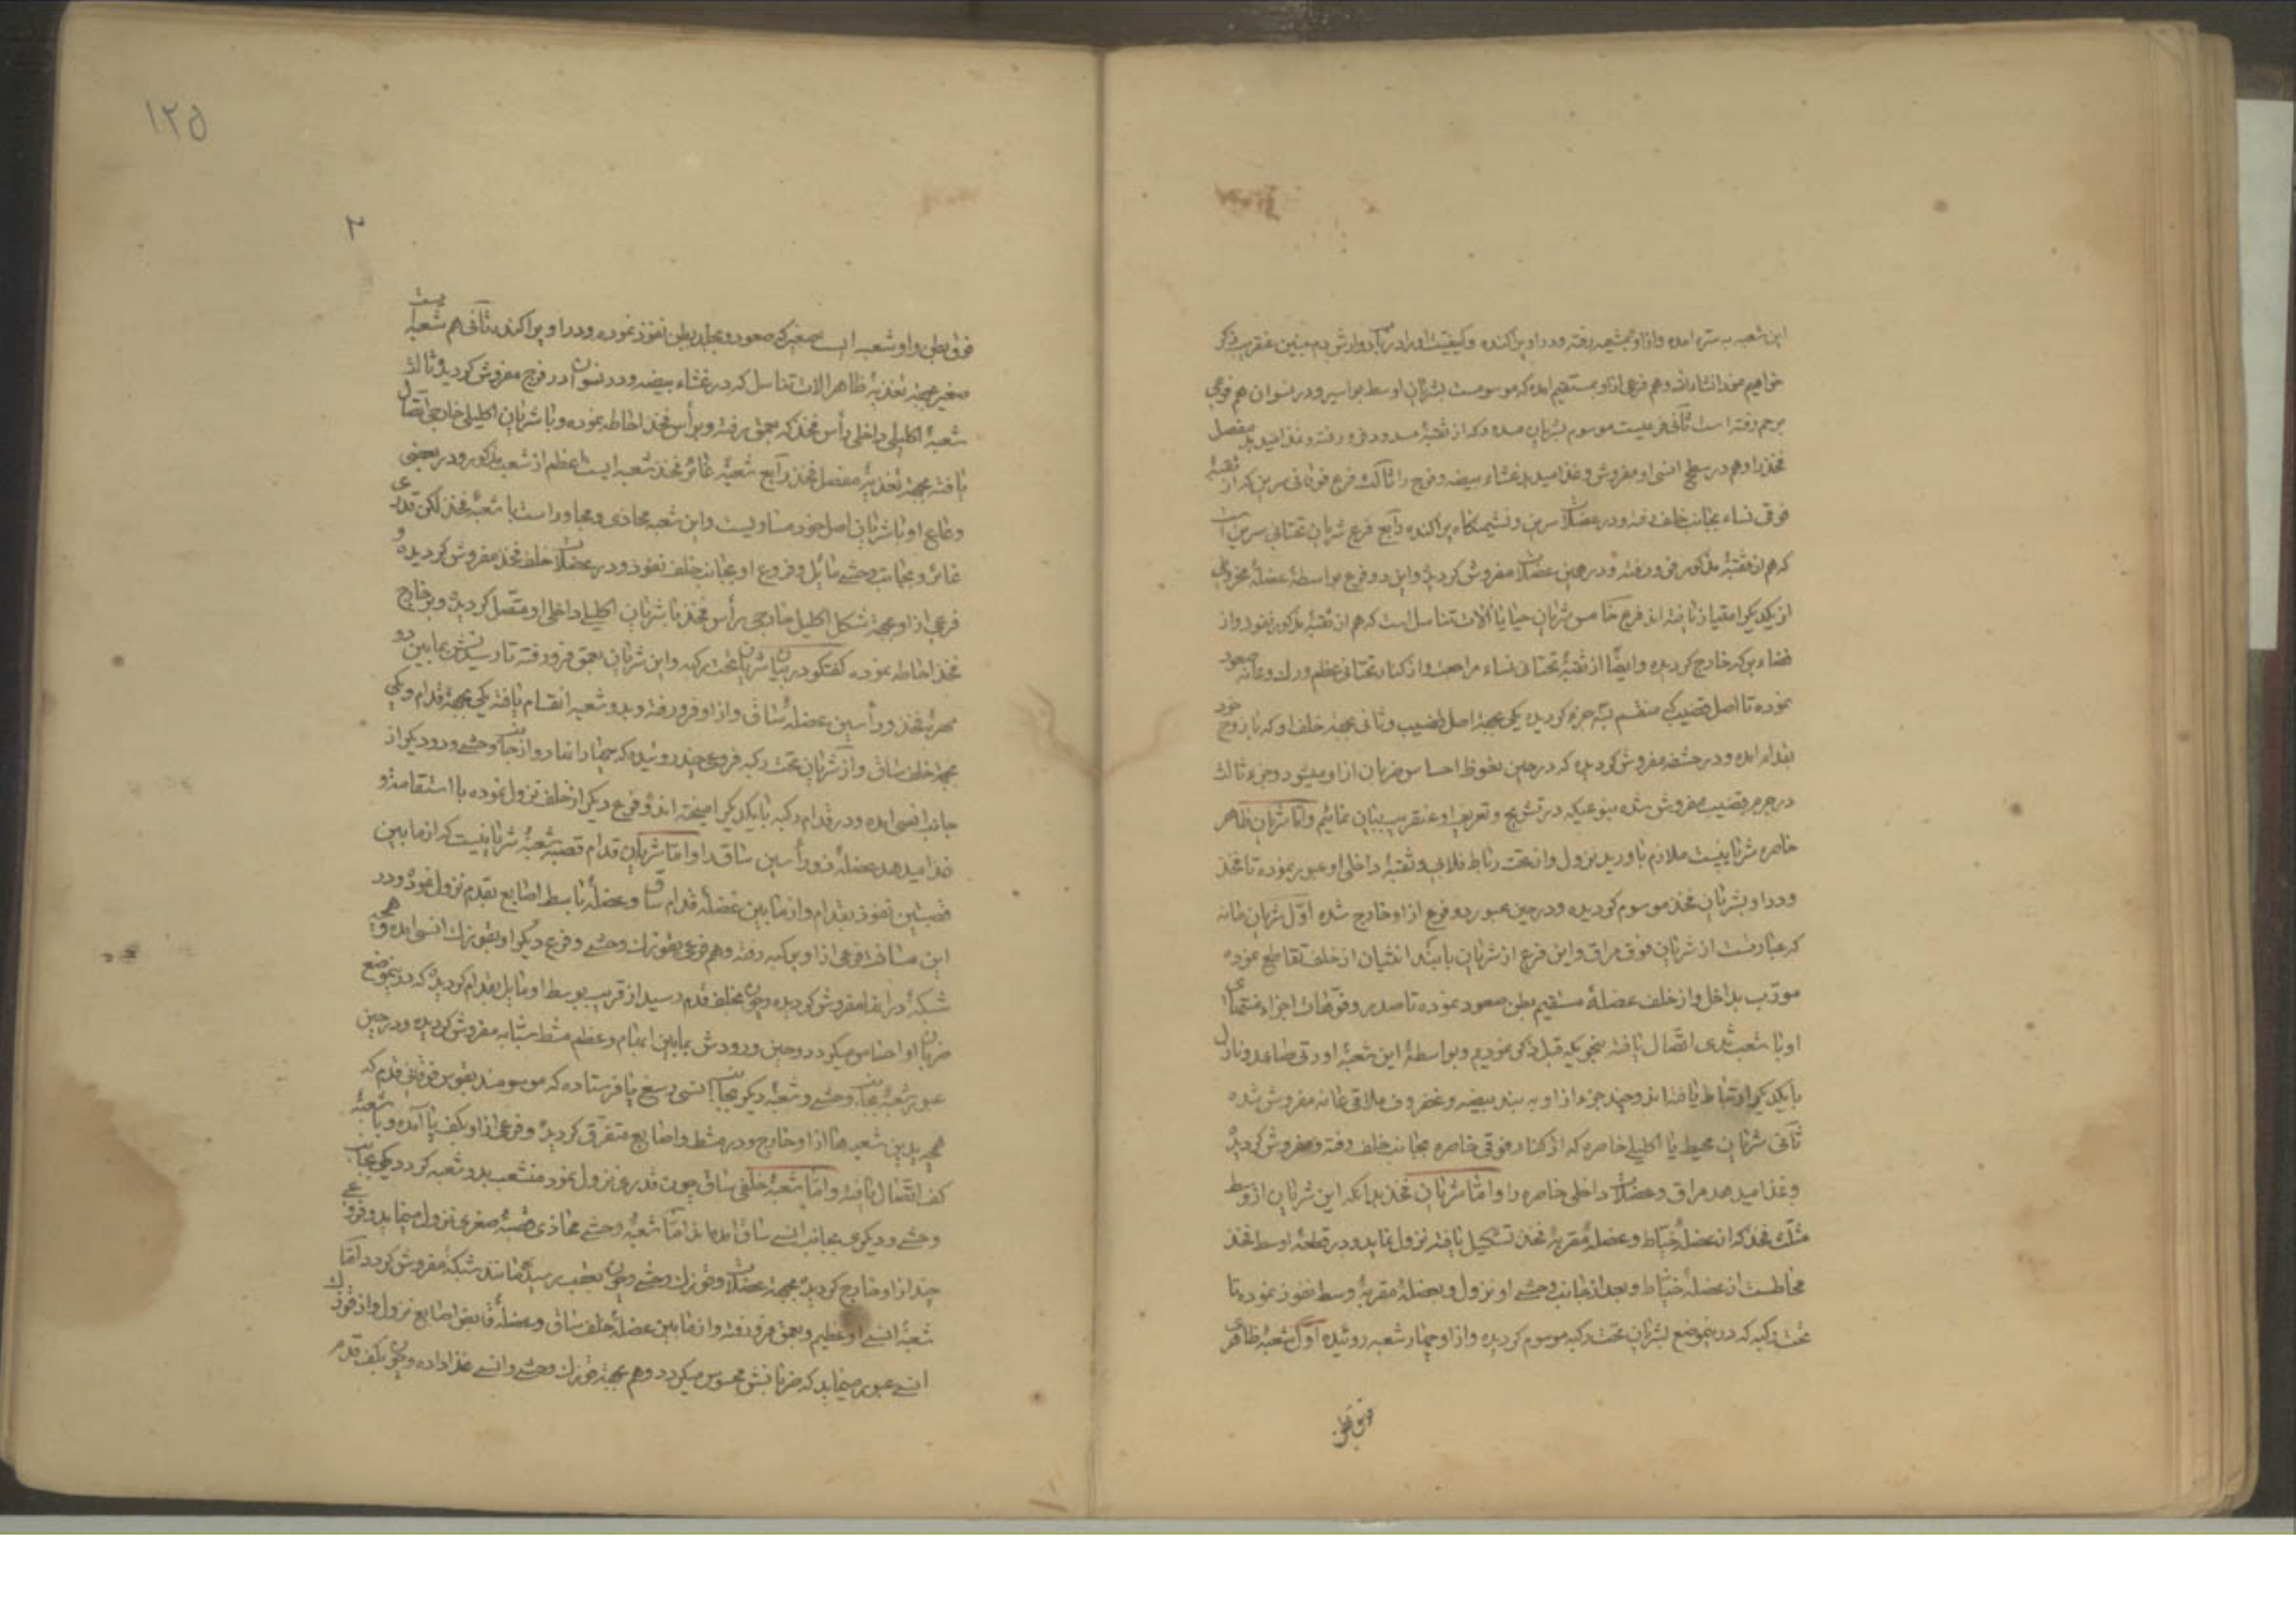 این شعبه به ستره امده و از او بمشیمه رفته و در او پراکنده و کیفیت او را در وارش دم جنین عنقریب ذکر
خواهیم نمود انشاءالله و هم فرعی از او بمستقیم امده که موسومست بشریان اوسط بواسیر و در نسوان هم فرعی
برحم رفته است ثانی فرعیست موسوم بشریان مسدوده که از ثقبهٔ مسدود فرو رفته و غذا میدهد مفصل
فخذ را و هم در سطح انسی او مفروش و غذا میدهد غشاء بیضه و فرج را ثالث فرع فوقانی سرین که از ثقبهٔ
فوقی نساء بجانب خلف رفته و در عضلات سرین و نشیمنکاه پراکنده رابع فرع شریان تحتانی سرین است
که هم از ثقبهٔ مذکور فرو رفته و در همین عضلات مفروش کردیده و این دو فرع بواسطهٔ عضلهٔ مخروطی
از یکدیکر امتیاز یافته اند فرع خامس شریان حیا یا الات تناسل است که هم از ثقبهٔ مذکور نفوذ و از
فضاء برکه خارج کردیده و ایضا از ثقبهٔ تحتانی نساء مراجعت و از کنار تحتانی عظم ورک و عانه صعود
نموده تا اصل قضیب که منقسم بسه جزء کردیده یکی بجهة اصل قضیب و ثانی بجهة خلف او که با زوج خود
بقدام امده و در حشفه مفروش کردیده که در حین نعوظ احساس ضربان از او میشود و جزء ثالث
در جرم قضیب مفروش شده بنوعیکه در تشریح و تعریف او عنقریب بیان نمائیم و اما شریان ظاهر
خاصره شریانیست ملازم با ورید نزول و از تحت رباط فلابی و ثقبهٔ داخلی او عبور نموده تا فخذ
و در او بشریان فخذ موسوم کردیده و در حین عبور دو فرع از او خارج شده اول شریان عانه
که عبارتست از شریان فوق مراق و این فرع از شریان با بند انثیان از خلف تقاطع نموده
مورب بداخل و از خلف عضلهٔ مستقیم بطن صعود نموده تا صدر و فوقانی اجزاء منتهای
او با شعب ثدی اتصال یافته بنحویکه قبل ذکر نمودیم و بواسطهٔ این شعبه اورتی صاعد و نازل
با یکدیکر ارتباط یافته اند و چند جزء از او به بند بیضه و غضروف ملاقی عانه مفروش شده
ثانی شریان محیط یا اکلیلی خاصره که از کنار فوقی خاصره بجانب خلف رفته و مفروش کردیده
و غذا میدهد مراق و عضلات داخلی خاصره را و اما شریان فخذ بدانکه این شریان از وسط
مثلث فخذ که از عضلهٔ خیاط و عضلهٔ مقربهٔ فخذ تشکیل یافته نزول نماید و در قطعهٔ اوسط فخذ
مخاطست از عضلهٔ خیاط و بعد از جانب وحشی او نزول و بعضلهٔ مقربهٔ وسط نفوذ نموده تا
تحت رکبه که در این موضع بشریان تحت رکبه موسوم کردیده و از او چهار شعبه روئیده اول شعبهٔ ظاهر
فوق بطن
۱۲۵
۲
فوق بطن و او شعبه ایست صغیر که صعود و بجلد بطن نفوذ نموده و در او پراکنده ثانی هم شعبه ایست
صغیر بجهة تغذیهٔ ظاهر الات تناسل که در غشاء بیضه و در نسوان در فرج مفروش کردیده ثالث
شعبهٔ اکلیلی داخلی رأس فخذ که بعمق رفته و برأس فخذ احاطه نموده و با شریان اکلیلی خارجی اتصال
یافته بجهة تغذیهٔ مفصل فخذ رابع شعبهٔ غائر فخذ شعبه ایست اعظم از شعب مذکور و در بعضی
وعاء او با شریان اصل خود مساویست و این شعبه محاذی و مجاور است با شعبهٔ فخذ لکن قدری
غائر و بجانب وحشی مائل و فروع او بجانب خلف نفوذ و در عضلات خلف فخذ مفروش کردیده و
فرعی از او بجهة تشکل اکلیل خارجی برأس فخذ با شریان اکلیلی داخلی او متصل کردیده و بخارج
فخذ احاطه نموده کفتکو در بیان شریان تحت رکبه و این شریان بعمق فرو رفته تا رسیدنش بمابین دو
مهرهٔ فخذ و رأسین عضلهٔ ساق و از او فرو رفته و بدو شعبه انقسام یافته یکی بجهة قدام و یکی
بجهة خلف ساق و از شریان تحت رکبه فروعی چند روئیده که چهار از انها دو از جانب وحشی و دو دیکر از
جانب انسی امده و در قدام رکبه با یکدیکر امیخته اند و فرع دیکر از خلف نزول نموده با استقامة و
غذا میدهد عضلهٔ ذو رأسین ساق را و اما شریان قدام قصبه شعبهٔ شریانیست که از مابین
قصبتین نفوذ بقدام و از مابین عضلهٔ قدام ساق و عضلهٔ باسط اصابع بقدم نزول نموده و در
این مسافت فرعی از او برکبه رفته و هم فرعی بقوزک وحشی و فرع دیکر او بقوزک انسی امده و بهیئة
شبکهٔ در انها مفروش کردیده و چون بخلف قدم رسید از قریب بوسط او مایل بقدام کردیده که در این موضع
ضربان او احساس میکردد و حین ورودش بمابین ابهام و عظم مشط سبابه مفروش کردیده و در حین
عبور شعبهٔ بجانب وحشی و شعبهٔ دیکر بجانب انسی رسغ پا فرستاده که موسومند بقوس فوقانی قدم که
شعبه ها از او خارج و در مشط و اصابع متفرق کردیده و فرعی از او بکف پا آمده و با شعبهٔ
کف اتصال یافته و اما شعبهٔ خلفی ساق چون قدری نزول نمود منشعب بدو شعبه کردد یکی بجانب
وحشی و دیکری بجانب انسی ساق اما شعبهٔ وحشی محاذی قصبهٔ صغری نزول مینماید و فروعی
چند از او خارج کردیده بجهة عضلات و قوزک وحشی و چون بعقب رسیده مانند شبکه مفروش کردد اما
شعبهٔ انسی او عظیم و بعمق فرو رفته و از مابین عضلهٔ خلف ساق و عضلهٔ قابض اصابع نزول و از قوزک
انسی عبور مینماید که ضربانش محسوس میکردد و هم بجهة قوزک وحشی و انسی غذا داده و چون بکف قدم